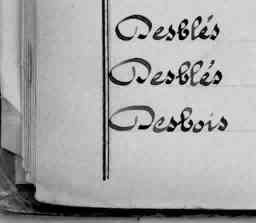 Desblés
Desblés
Desbois